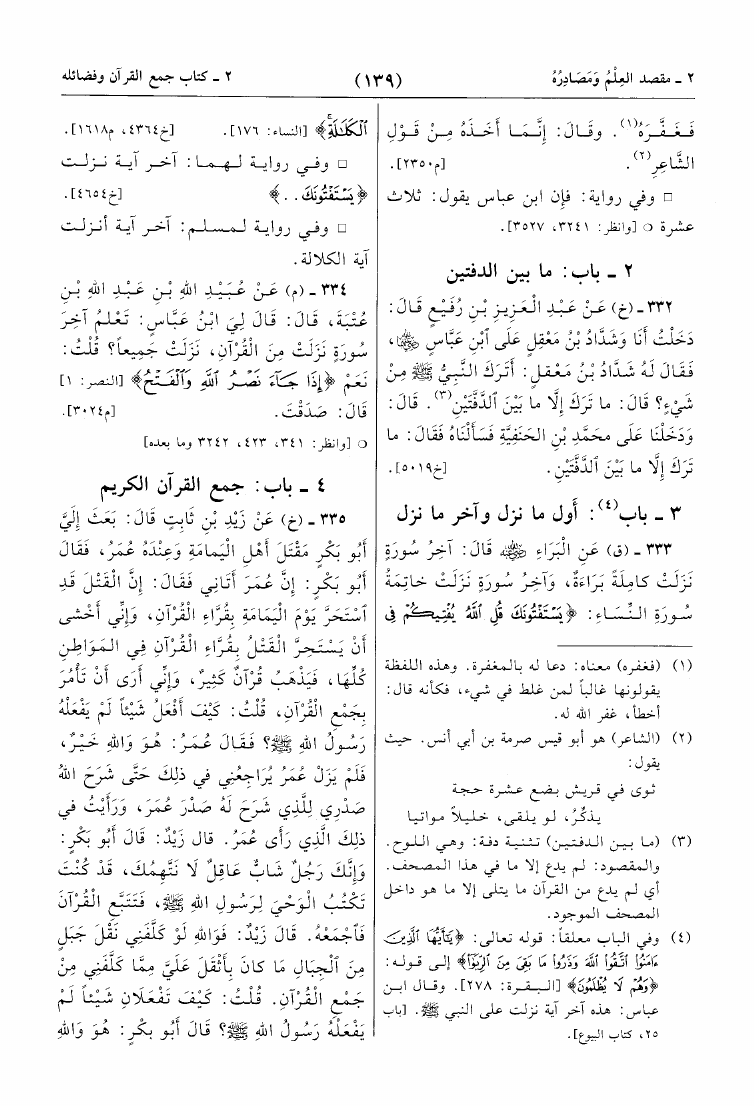 ٢ ـ مقصد العِلْمُ وَمَصَادِرُهُ
(١٣٩)
٢ ـ كتاب جمع القرآن وفضائله
فَغَفَّرَهُ(١). وقَالَ: إِنَّمَا أَخَذَهُ مِنْ قَوْلِ
الشَّاعِرِ(٢). [م٢٣٥٠].
□ وفي رواية: فإن ابن عباس يقول: ثلاث
عشرة ○ [وانظر: ٣٢٤١، ٣٥٢٧].
٢ ـ باب: ما بين الدفتين
٣٣٢ـ (خ) عَنْ عَبْدِ الْعَزِيزِ بْنِ رُفَيْعٍ قَالَ:
دَخَلْتُ أَنَا وَشَدَّادُ بْنُ مَعْقِلٍ عَلَى ٱبْنِ عَبَّاسٍ ﵄،
فَقَالَ لَهُ شَدَّادُ بْنُ مَعْقِلٍ: أَتَرَكَ النَّبِيُّ ﷺ مِنْ
شَيْءٍ؟ قَالَ: ما تَرَكَ إِلَّا ما بَيْنَ الدَّفَّتَيْنِ(٣). قَالَ:
وَدَخَلْنَا عَلَى محَمَّدِ بْنِ الحَنَفِيَّةِ فَسَأَلْنَاهُ فَقَالَ: ما
تَرَكَ إِلَّا ما بَيْنَ ٱلدَّفَّتَيْنِ. [خ٥٠١٩].
٣ ـ باب(٤): أول ما نزل وآخر ما نزل
٣٣٣ـ (ق) عَنِ الْبَرَاءِ ﵁ قَالَ: آخِرُ سُورَةٍ
نَزَلَتْ كامِلَةً بَرَاءَةٌ، وَآخِرُ سُورَةٍ نَزَلَتْ خاتِمَةُ
سُورَةِ النِّسَاءِ: ﴿يَسْتَفْتُونَكَ قُلِ ٱللَّهُ يُفْتِيكُمْ فِى
(١) (فغفره) معناه: دعا له بالمغفرة. وهذه اللفظة
يقولونها غالباً لمن غلط في شيء، فكأنه قال:
أخطأ، غفر الله له.
(٢) (الشاعر) هو أبو قيس صرمة بن أبي أنس. حيث
يقول:
ثوى في قريش بضع عشرة حجة
يذكِّرُ، لو يلقى، خليلاً مواتيا
(٣) (ما بين الدفتين) تثنية دفة: وهي اللوح.
والمقصود: لم يدع إلا ما في هذا المصحف.
أي لم يدع من القرآن ما يتلى إلا ما هو داخل
المصحف الموجود.
(٤) وفي الباب معلقاً: قوله تعالى: ﴿يَٰٓأَيُّهَا ٱلَّذِينَ
ءَامَنُوا۟ ٱتَّقُوا۟ ٱللَّهَ وَذَرُوا۟ مَا بَقِىَ مِنَ ٱلرِّبَوٰٓا۟﴾ إلى قوله:
﴿وَهُمْ لَا يُظْلَمُونَ﴾ [البقرة: ٢٧٨]. وقال ابن
عباس: هذه آخر آية نزلت على النبي ﷺ. [باب
٢٥، كتاب البيوع].
ٱلْكَلَٰلَةِ﴾ [النساء: ١٧٦]. [خ٤٣٦٤، م١٦١٨].
□ وفي رواية لهما: آخر آية نزلت
﴿يَسْتَفْتُونَكَ..﴾ [خ٤٦٥٤].
□ وفي رواية لمسلم: آخر آية أنزلت
آية الكلالة.
٣٣٤ـ (م) عَنْ عُبَيْدِ اللهِ بْنِ عَبْدِ اللهِ بْنِ
عُتْبَةَ، قَالَ: قَالَ لِيَ ابْنُ عَبَّاسٍ: تَعْلَمُ آخِرَ
سُورَةٍ نَزَلَتْ مِنَ الْقُرْآنِ، نَزَلَتْ جَمِيعاً؟ قُلْتُ:
نَعَمْ ﴿إِذَا جَآءَ نَصْرُ ٱللَّهِ وَٱلْفَتْحُ﴾ [النصر: ١]
قَالَ: صَدَقْتَ. [م٣٠٢٤].
○ [وانظر: ٣٤١، ٤٢٣، ٣٢٤٢ وما بعده]
٤ ـ باب: جمع القرآن الكريم
٣٣٥ـ (خ) عَنْ زَيْدِ بْنِ ثَابِتٍ قَالَ: بَعَثَ إِلَيَّ
أَبُو بَكْرٍ مَقْتَلَ أَهْلِ الْيَمَامَةِ وَعِنْدَهُ عُمَرُ، فَقَالَ
أَبُو بَكْرٍ: إِنَّ عُمَرَ أَتَانِي فَقَالَ: إِنَّ الْقَتْلَ قَدِ
ٱسْتَحَرَّ يَوْمَ الْيَمَامَةِ بِقُرَّاءِ الْقُرْآنِ، وَإِنِّي أَخْشى
أَنْ يَسْتَحِرَّ الْقَتْلُ بِقُرَّاءِ الْقُرْآنِ فِي المَوَاطِنِ
كُلِّهَا، فَيَذْهَبُ قُرْآنٌ كَثِيرٌ، وَإِنِّي أَرَى أَنْ تَأْمُرَ
بِجَمْعِ الْقُرْآنِ، قُلْتُ: كَيْفَ أَفْعَلُ شَيْئاً لَمْ يَفْعَلْهُ
رَسُولُ اللهِ ﷺ؟ فَقَالَ عُمَرُ: هُوَ وَاللهِ خَيْرٌ،
فَلَمْ يَزَلْ عُمَرُ يُرَاجِعُنِي في ذلِكَ حَتَّى شَرَحَ اللهُ
صَدْرِي لِلَّذِي شَرَحَ لَهُ صَدْرَ عُمَرَ، وَرَأَيْتُ في
ذلِكَ الَّذِي رَأَى عُمَرُ. قال زَيْدٌ: قَالَ أَبُو بَكْرٍ:
وَإِنَّكَ رَجُلٌ شَابٌّ عاقِلٌ لَا نَتَّهِمُكَ، قَدْ كُنْتَ
تَكْتُبُ الْوَحْيَ لِرَسُولِ اللهِ ﷺ، فَتَتَبَّعِ الْقُرْآنَ
فَٱجْمَعْهُ. قَالَ زَيْدٌ: فَوَاللهِ لَوْ كَلَّفَنِي نَقْلَ جَبَلٍ
مِنَ الْجِبَالِ مَا كانَ بِأَثْقَلَ عَلَيَّ مِمَّا كَلَّفَنِي مِنْ
جَمْعِ الْقُرْآنِ. قُلْتُ: كَيْفَ تَفْعَلَانِ شَيْئاً لَمْ
يَفْعَلْهُ رَسُولُ اللهِ ﷺ؟ قَالَ أَبُو بكْرٍ: هُوَ وَاللهِ